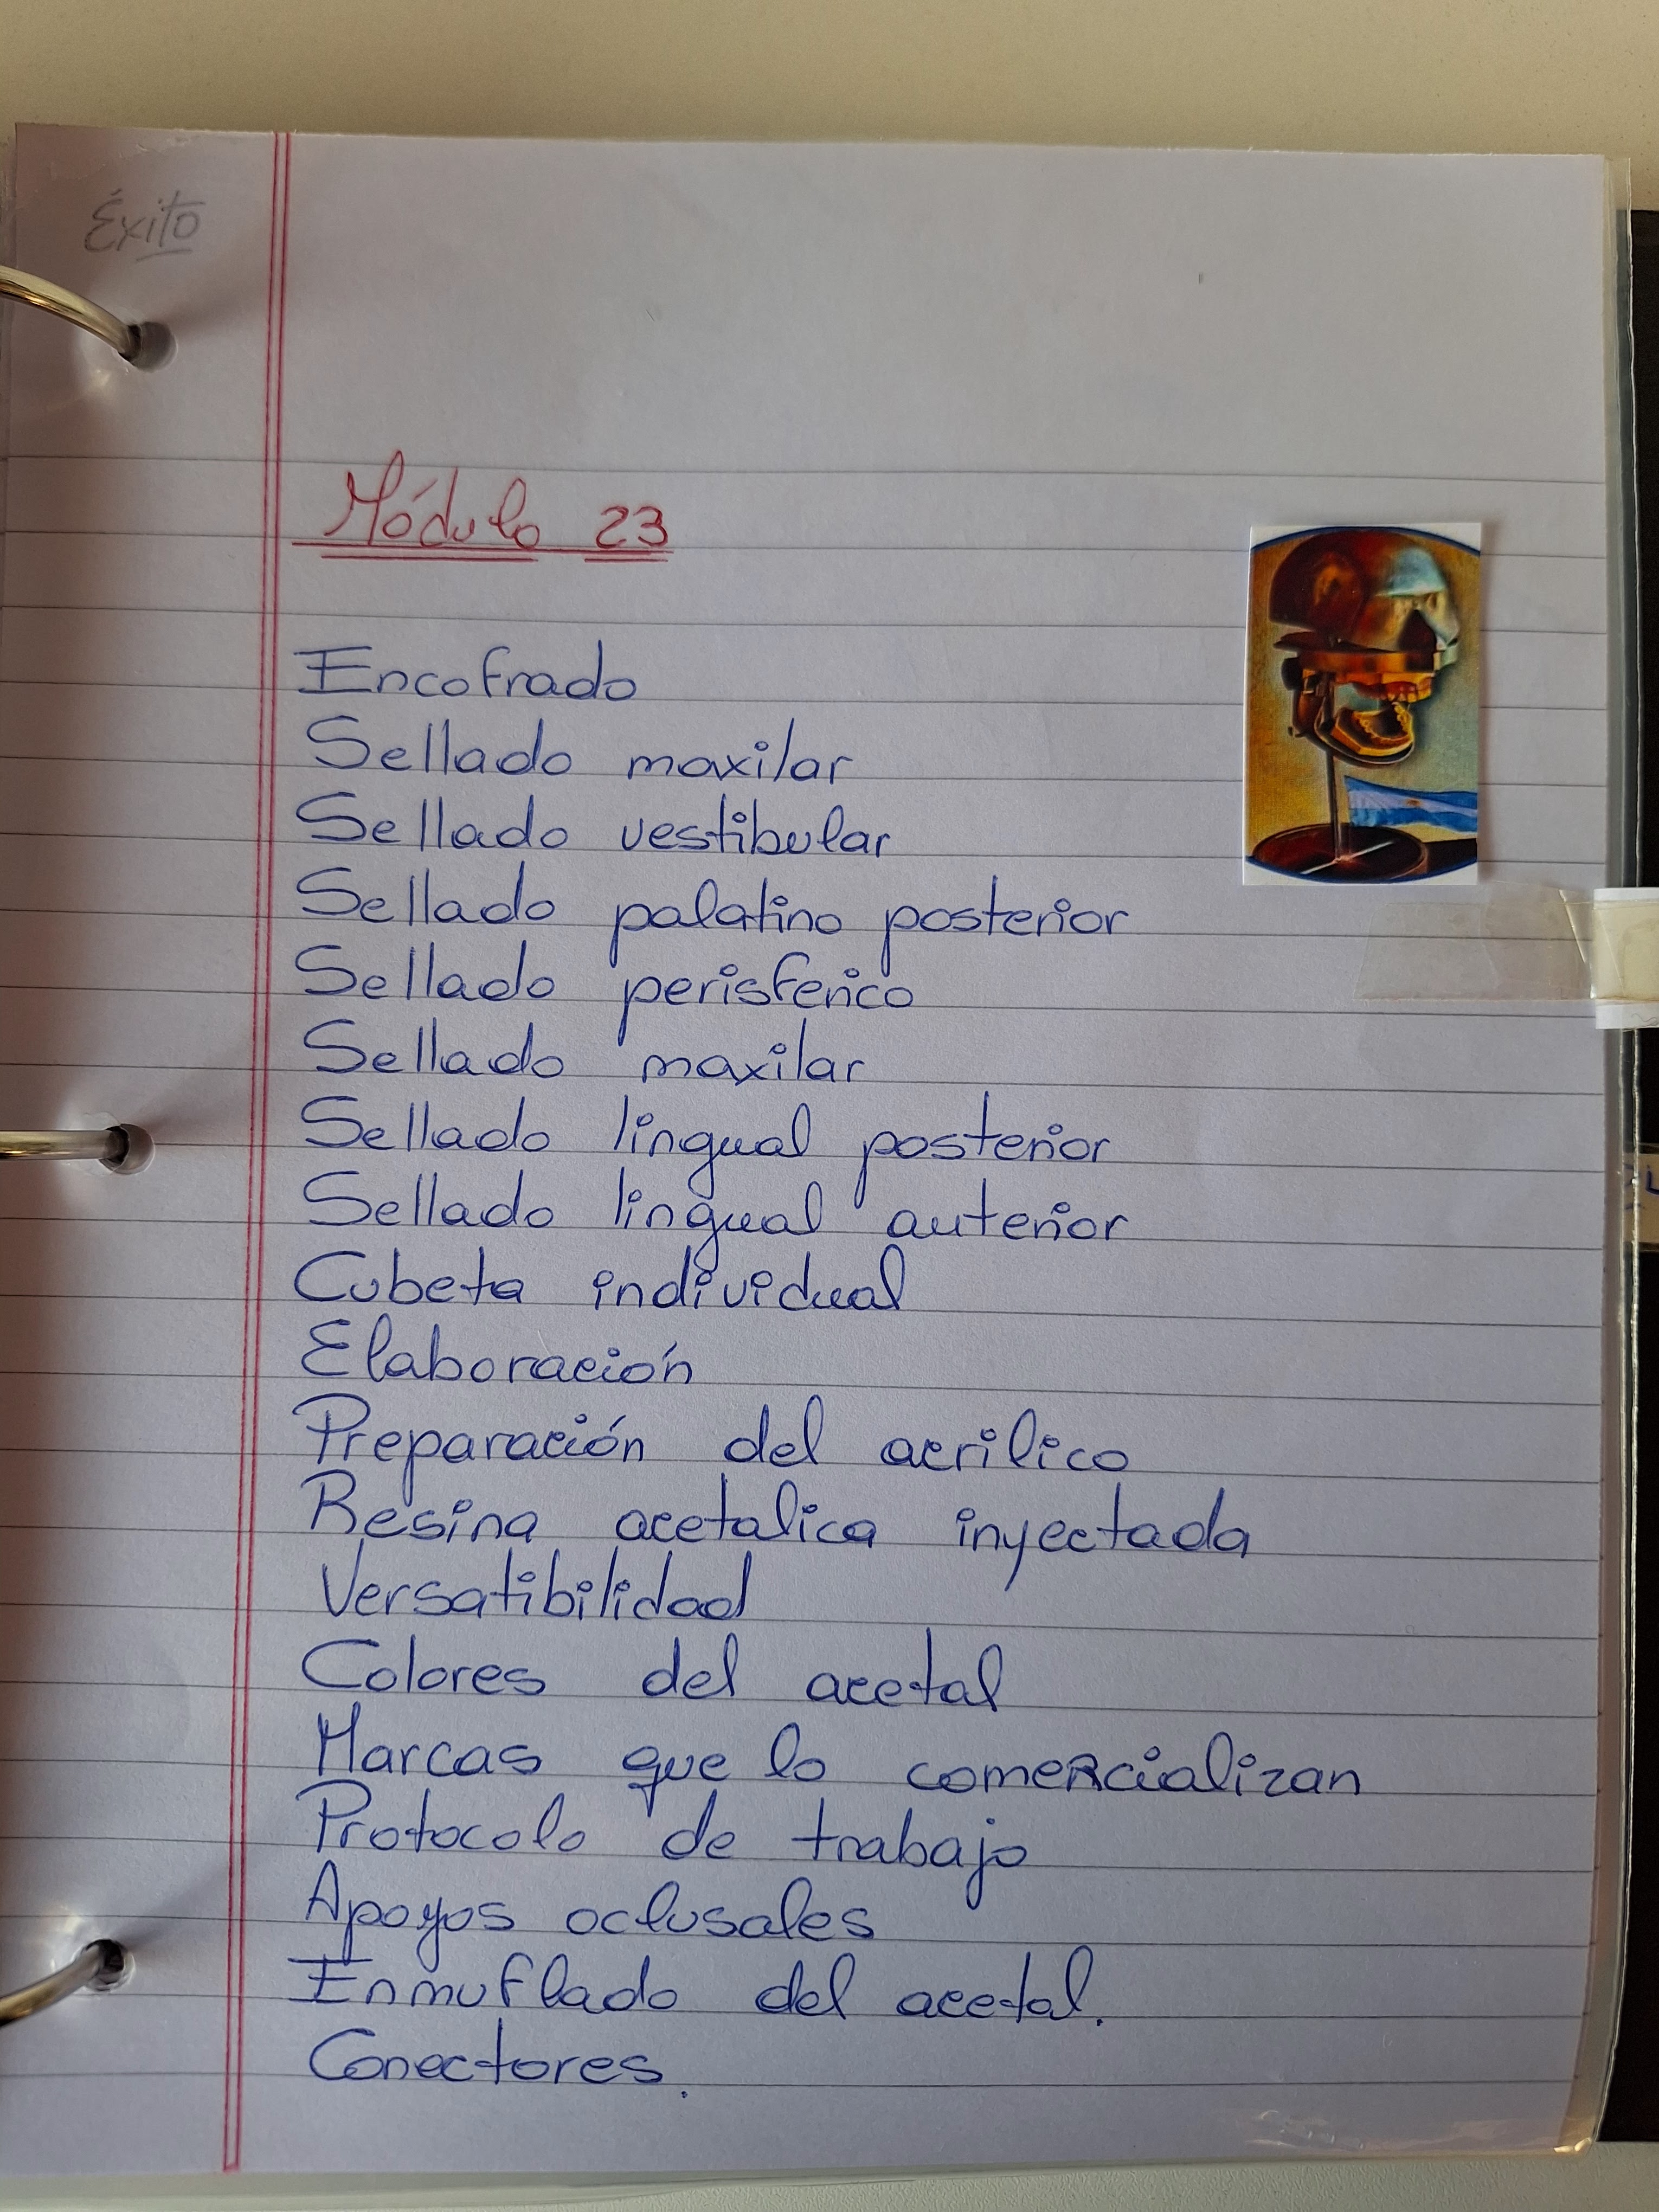 Éxito
Módulo 23
Encofrado
Sellado maxilar
Sellado vestibular
Sellado palatino posterior
Sellado perisferico
Sellado maxilar
Sellado lingual posterior
Sellado lingual anterior
Cubeta individual
Elaboración
Preparación del acrilico
Resina acetalica inyectada
Versatibilidad
Colores del acetal
Marcas que lo comercializan
Protocolo de trabajo
Apoyos oclusales
Enmuflado del acetal.
Conectores.